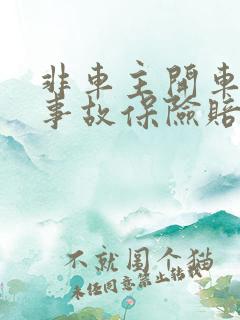 非車主開車
事故保險賠
不就围个猫
未任同意禁止转载